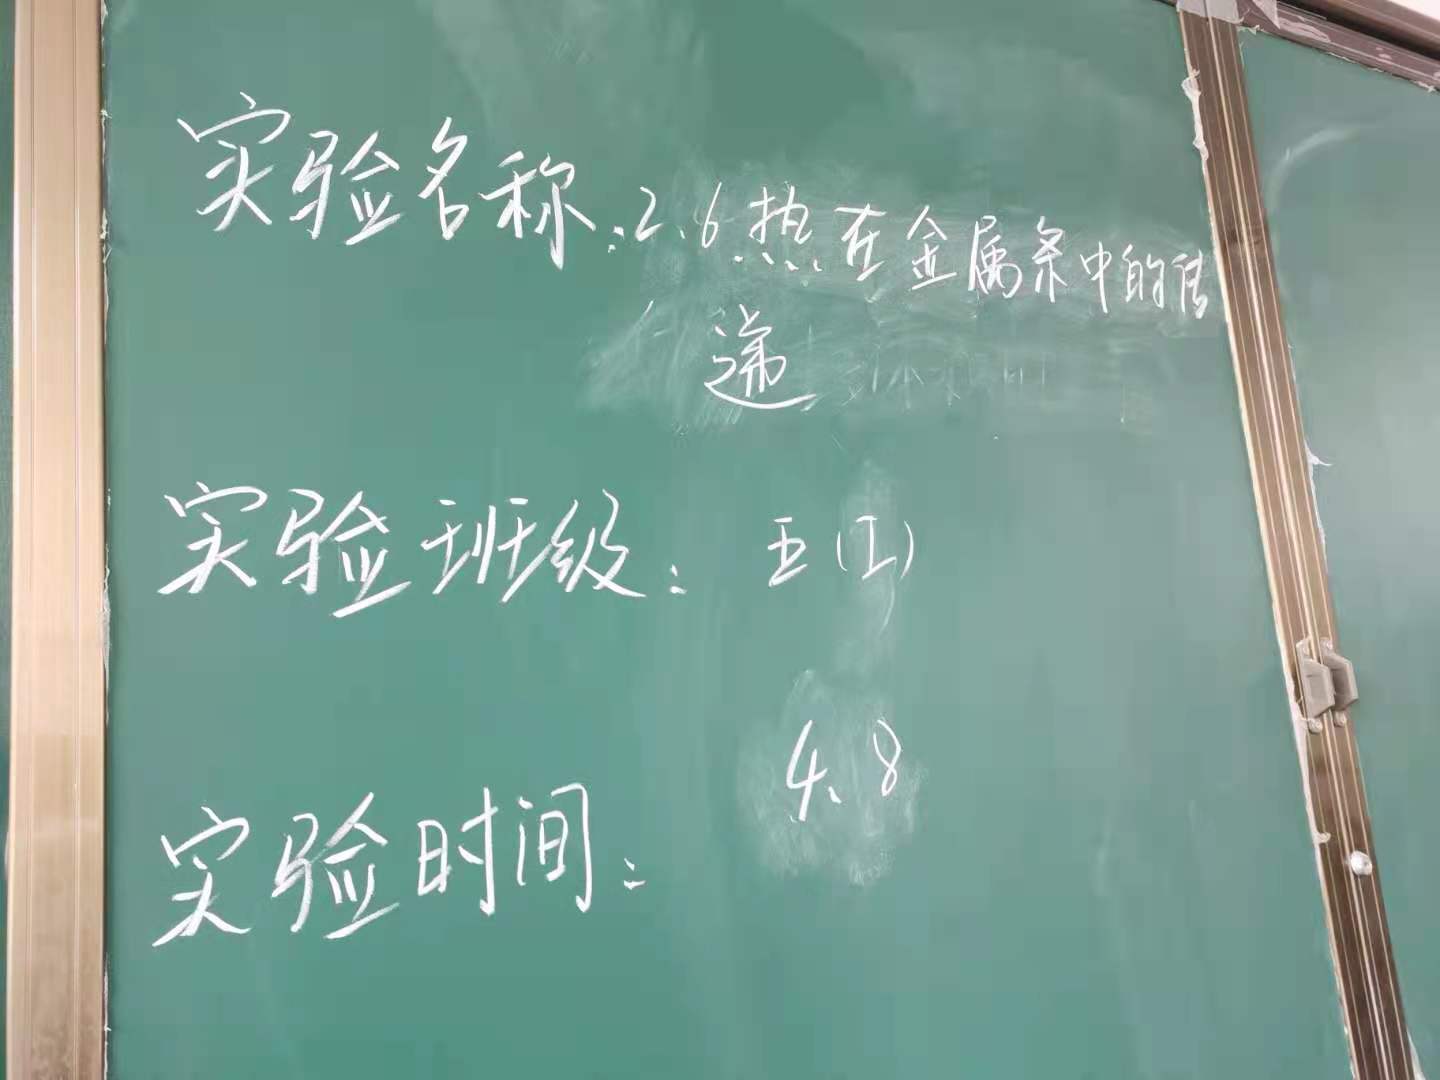 实验名称:2.6热在金属条中的传
递
实验班级: 五(1)
实验时间: 4.8